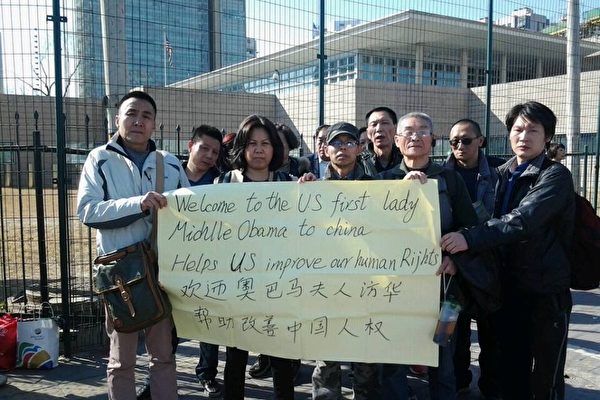 Welcome to the US first lady
Midhlle Obama to china
Helps US improve our human Rijhts
欢迎奥巴马夫人访华
帮助改善中国人权